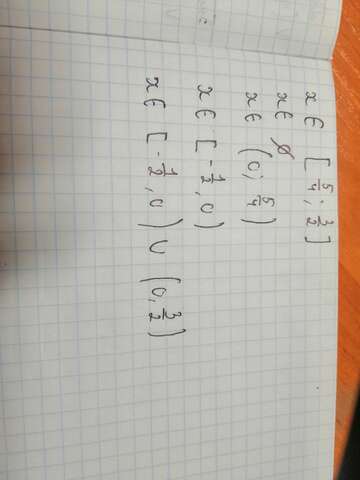 x ∈ [5/4; 3/2]
x ∈ ∅
x ∈ (0; 5/4)
x ∈ [-1/2, 0)
x ∈ [-1/2, 0) ∪ (0, 3/2]